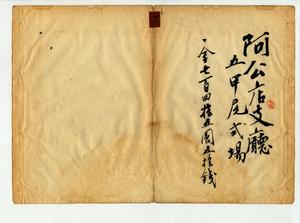 阿公店支廳
五甲尾式場
一金七百四拾五圓五拾錢